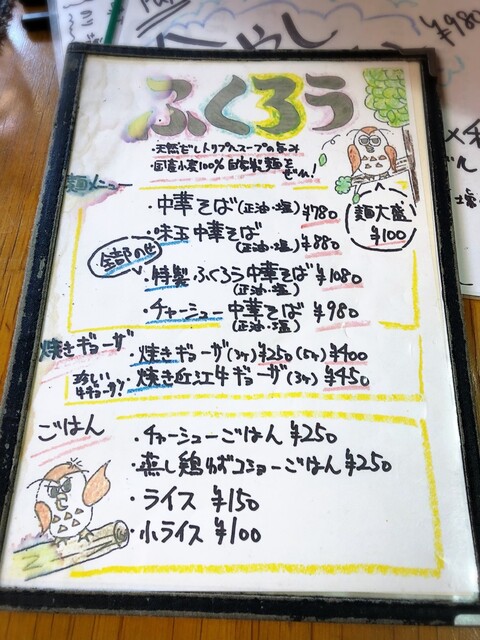 冷やし
¥980
ふくろう
・天然だしトリプルスープの旨み
・国産小麦100%自家製麺を
ぜひ!
麺メニュー
麺大盛
¥100
・中華そば(正油・塩) ¥780
・味玉中華そば
(正油・塩) ¥880
全部のせ
・特製ふくろう中華そば ¥1080
(正油・塩)
・チャーシュー中華そば ¥980
(正油・塩)
焼きギョーザ
・焼きギョーザ(3ヶ)¥250(5ヶ)¥400
珍しい
牛ギョーザ!
・焼き近江牛ギョーザ(3ヶ)¥450
ごはん
・チャーシューごはん ¥250
・蒸し鶏ゆずコショーごはん ¥250
・ライス ¥150
・小ライス ¥100